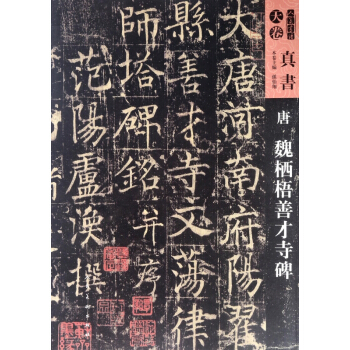 天卷
真書
唐 魏栖梧善才寺碑
大唐河南府陽翟
縣善才寺文蕩律
師塔碑銘并序
范陽盧渙撰